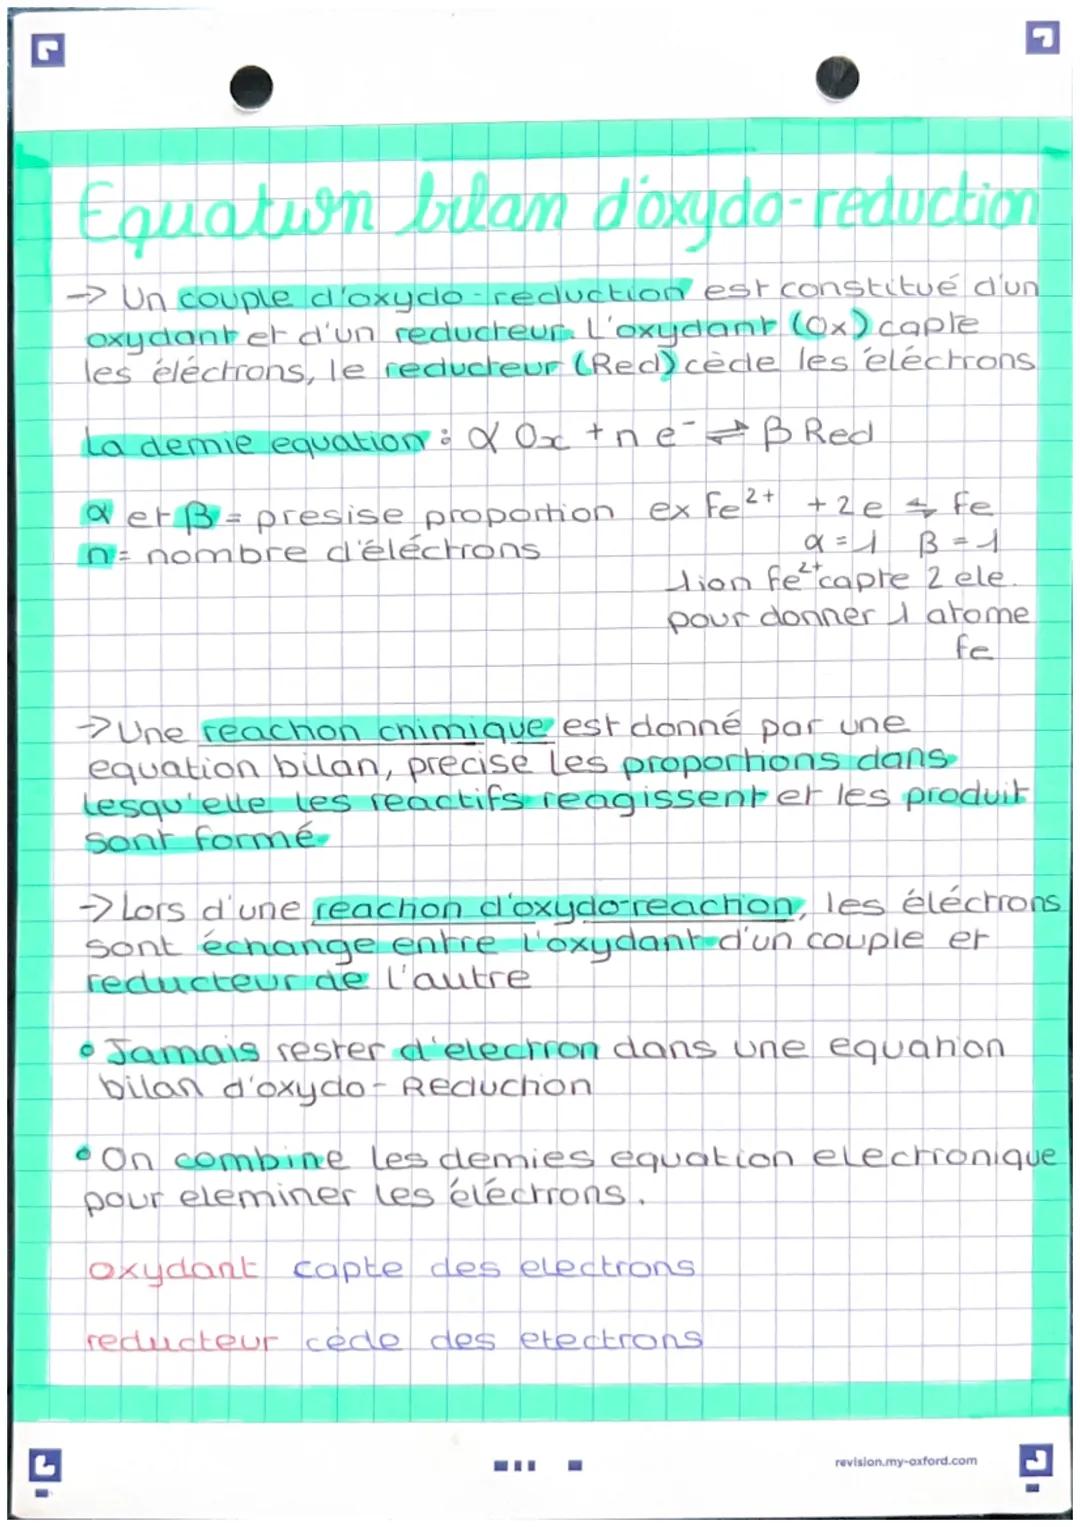 Equation bilan d'oxydo-reduction
→ Un couple d'oxydo-reduction est constitué d'un
oxydant et d'un reducteur. L'oxydant (Ox) capte
les éléctrons, le reducteur (Red) cède les éléctrons
La demie equation : α Ox + n e⁻ ⇌ β Red
α et β = presise proportion ex Fe²⁺ + 2e ⇆ Fe
n = nombre d'éléctrons α = 1 β = 1
1 ion Fe²⁺ capte 2 ele.
pour donner 1 atome
Fe
→ Une reaction chimique est donné par une
equation bilan, precise les proportions dans
lesqu'elle les reactifs reagissent et les produit
sont formé
→ Lors d'une reaction d'oxydo-reaction, les éléctrons
sont échange entre l'oxydant d'un couple et
reducteur de l'autre
• Jamais rester d'electron dans une equation
bilan d'oxydo-Reduction
• On combine les demies equation electronique
pour eleminer les éléctrons.
oxydant capte des electrons
reducteur cède des electrons
revision.my-oxford.com